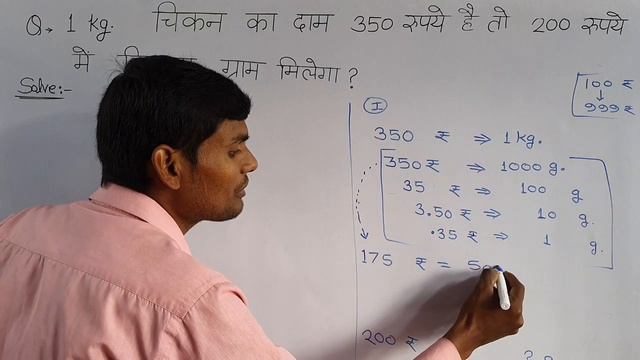 Q. 1 kg. चिकन का दाम 350 रुपये है तो 200 रुपये
में ग्राम मिलेगा ?
Solve:-
100 ₹
↓
999 ₹
I
350 ₹ ⇒ 1 kg.
350 ₹ ⇒ 1000 g.
35 ₹ ⇒ 100 g
3.50 ₹ ⇒ 10 g.
.35 ₹ ⇒ 1 g.
175 ₹ = 50
200 ₹
?